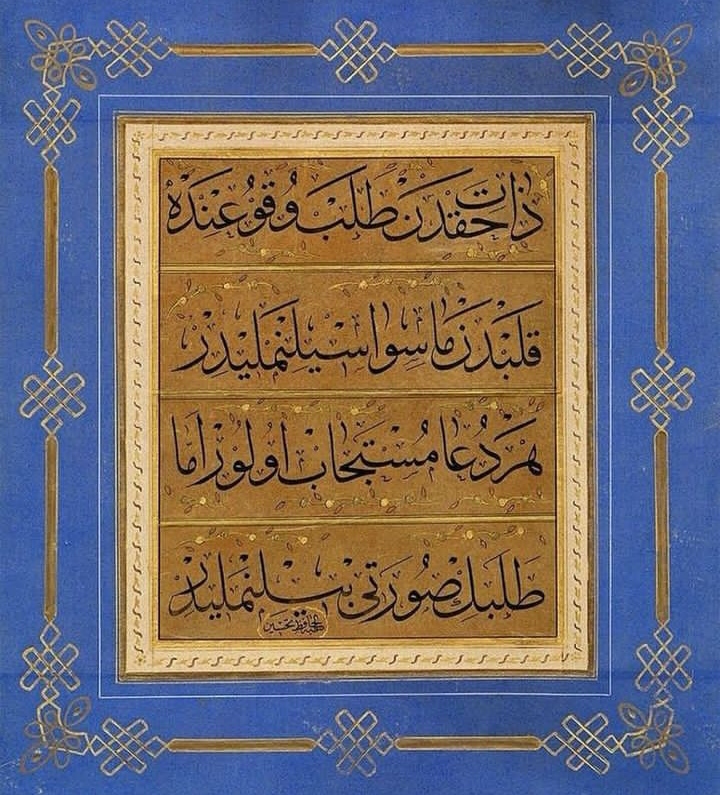 ذات حقدن طلب وقوعنده
قلبدن ماسوا سيلنمليدر
هر دعا مستجاب اولور اما
طلبك صورتى بيلنمليدر